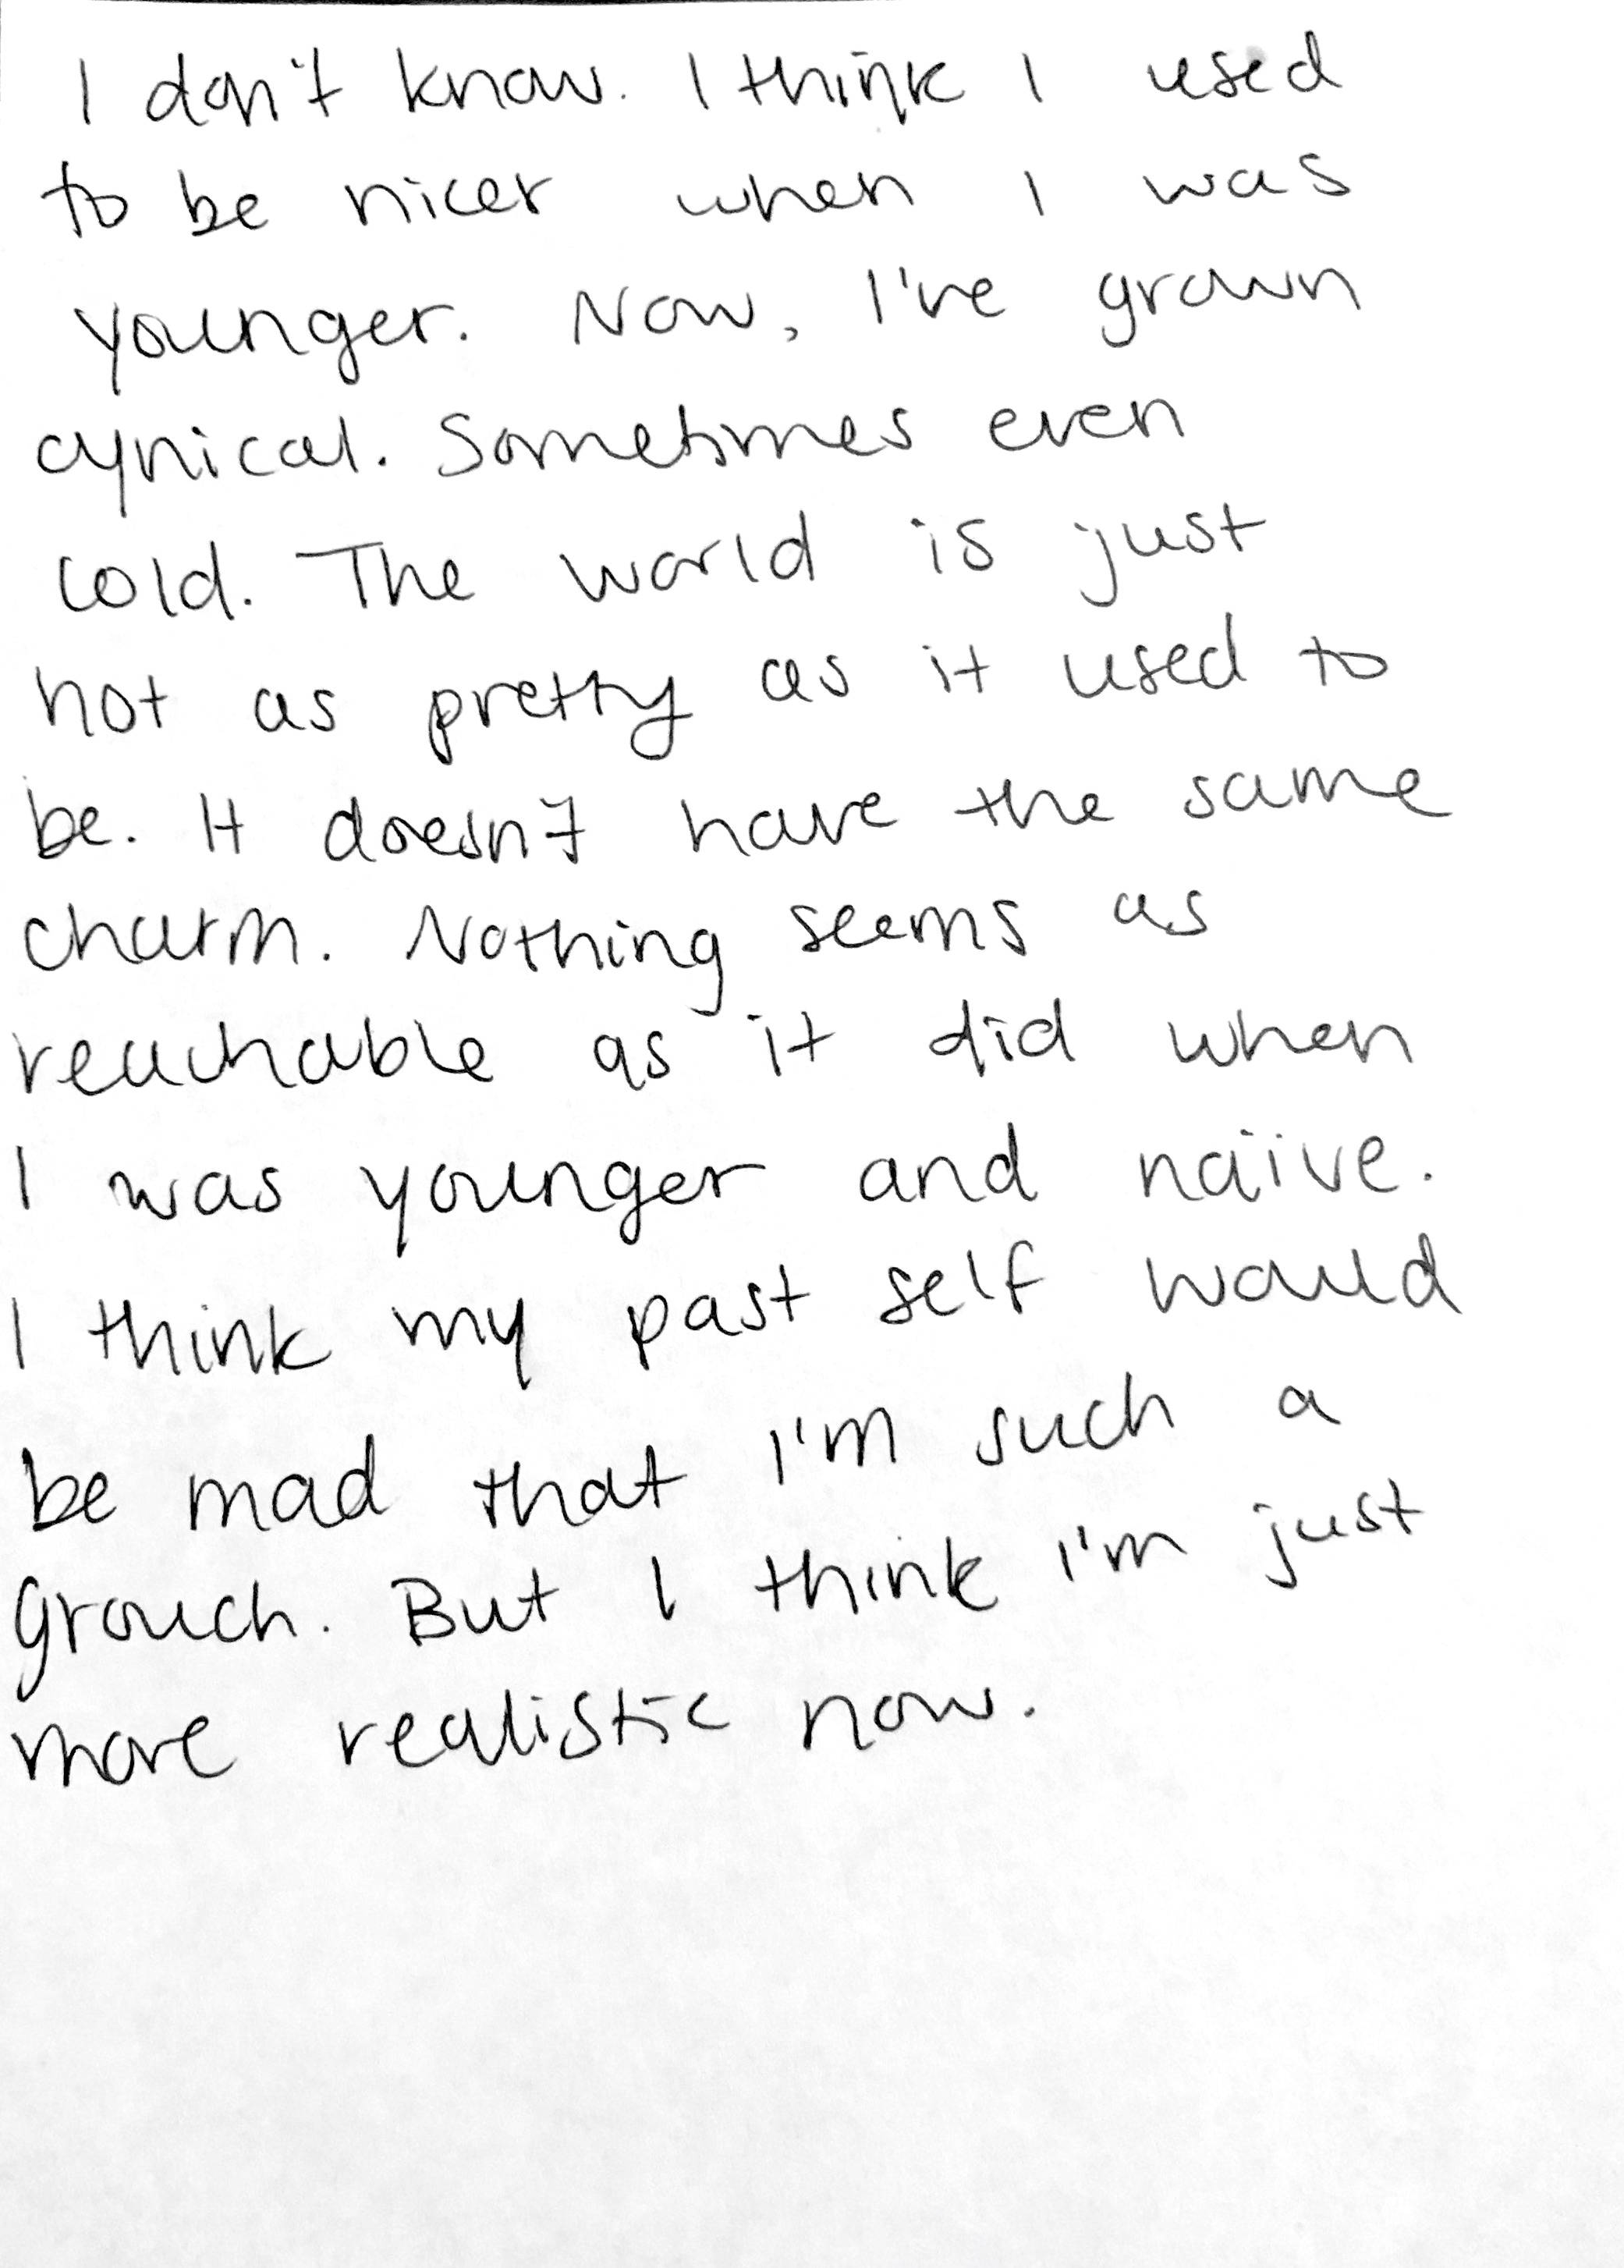 I don't know. I think I used
to be nicer when I was
younger. Now, I've grown
cynical. Sometimes even
cold. The world is just
not as pretty as it used to
be. It doesn't have the same
charm. Nothing seems as
reachable as it did when
I was younger and naïive.
I think my past self would
be mad that I'm such a
grouch. But I think I'm just
more realistic now.